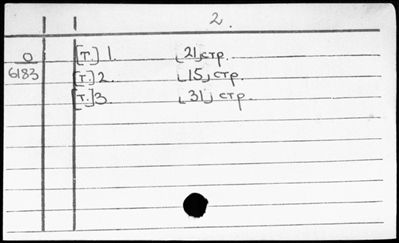 2.
О [т.] 1. [21] стр.
6183 [т.] 2. [15] стр.
[т.] 3. [31] стр.